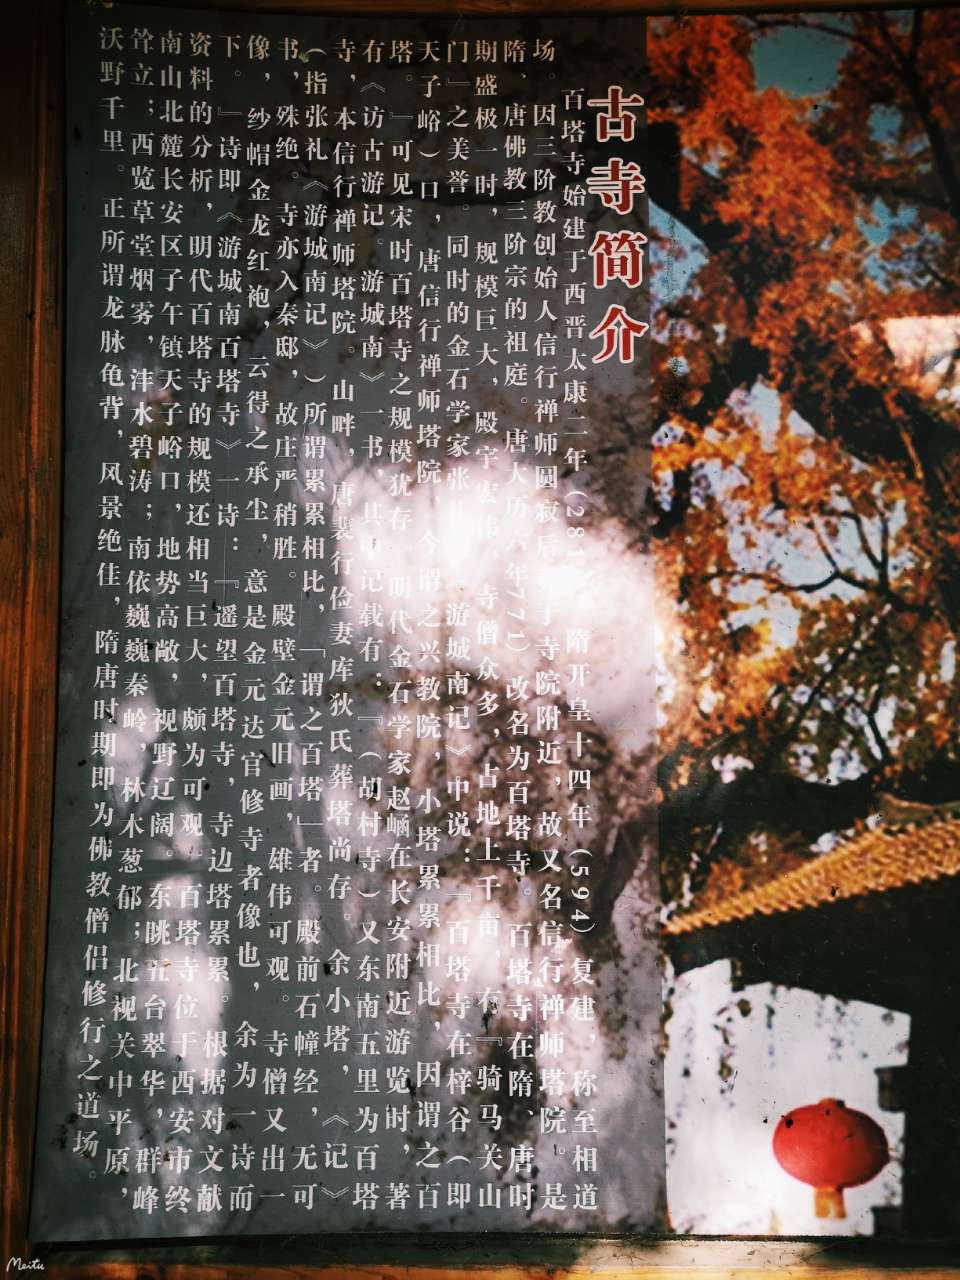 古寺简介
百塔寺始建于西晋太康二年(281 隋开皇十四年(594)复建,称至相道
场。因三阶教创始人信行禅师圆寂后于寺院附近,故又名信行禅师塔院。是
隋、唐佛教三阶宗的祖庭。唐大历六年771)改名为百塔寺。百塔寺在隋、唐时
期盛极一时,规模巨大,殿宇宏伟、寺僧众多,占地上千亩,有『骑马关山
门』之美誉。同时的金石学家张 游城南记》中说:『百塔寺在梓谷(即
天子峪)口,唐信行禅师塔院,今谓之兴教院,小塔累累相比,因谓之百
塔。』可见宋时百塔寺之规模犹存。明代金石学家赵崡在长安附近游览时,著
有《访古游记。游城南》一书,其 记载有:『(胡村寺)又东南五里为百塔
寺,本信行禅师塔院。山畔,唐裴行俭妻库狄氏葬塔尚存。余小塔,《记》
(指张礼《游城南记》)所谓累累相比,「谓之百塔」者。殿前石幢经,无可
书,殊绝。寺亦入秦邸,故庄严稍胜。殿壁金元旧画,雄伟可观。寺僧又出一
像,纱帽金龙红袍,云得之承尘,意是金元达官修寺者像也,余为一诗而
下。』诗即《游城南百塔寺》一诗:『遥望百塔寺,寺边塔累累。根据对文献
资料的分析,明代百塔寺的规模还相当巨大,颇为可观。百塔寺位于西安市终
南山北麓长安区子午镇天子峪口,地势高敞,视野辽阔。东眺五台翠华,群峰
耸立;西览草堂烟雾,沣水碧涛;南依巍巍秦岭,林木葱郁;北视关中平原,
沃野千里。正所谓龙脉龟背,风景绝佳,隋唐时期即为佛教僧侣修行之道场。
Meitu